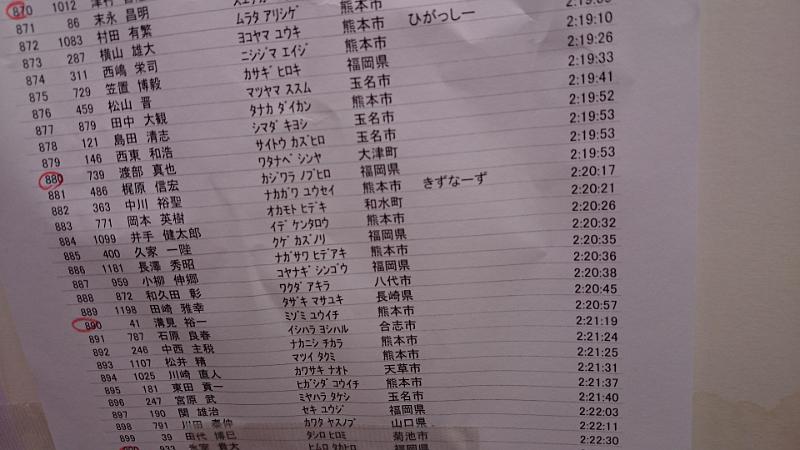 870 1012
871 86 末永 昌明
872 1083 村田 有繁 ムラタ アリシゲ 熊本市
873 287 横山 雄大 ヨコヤマ ユウキ 熊本市 ひがっしー
874 311 西嶋 栄司 ニシジマ エイジ 熊本市 2:19:10
875 729 笠置 博毅 カサギ ヒロキ 福岡県 2:19:26
876 459 松山 晋 マツヤマ ススム 玉名市 2:19:33
877 879 田中 大観 タナカ ダイカン 熊本市 2:19:41
878 121 島田 清志 シマダ キヨシ 玉名市 2:19:52
879 146 西東 和浩 サイトウ カズヒロ 玉名市 2:19:53
880 739 渡部 真也 ワタナベ シンヤ 大津町 2:19:53
881 486 梶原 信宏 カジワラ ノブヒロ 福岡県 2:19:53
882 363 中川 裕聖 ナカガワ ユウセイ 熊本市 きずなーず 2:20:17
883 771 岡本 英樹 オカモト ヒデキ 和水町 2:20:21
884 1099 井手 健太郎 イデ ケンタロウ 熊本市 2:20:26
885 400 久家 一陛 クゲ カズノリ 福岡県 2:20:32
886 1181 長澤 秀昭 ナガサワ ヒデアキ 熊本市 2:20:35
887 959 小柳 伸郷 コヤナギ シンゴウ 福岡県 2:20:36
888 872 和久田 彰 ワクダ アキラ 八代市 2:20:38
889 1198 田崎 雅幸 タザキ マサユキ 長崎県 2:20:45
890 41 溝見 裕一 ミゾミ ユウイチ 熊本市 2:20:57
891 787 石原 良春 イシハラ ヨシハル 合志市 2:21:19
892 246 中西 主税 ナカニシ チカラ 熊本市 2:21:24
893 1107 松井 精 マツイ タクミ 熊本市 2:21:25
894 1025 川崎 直人 カワサキ ナオト 天草市 2:21:31
895 181 東田 貢一 ヒガシダ コウイチ 熊本市 2:21:37
896 247 宮原 武 ミヤハラ タケシ 玉名市 2:21:40
897 190 関 雄治 セキ ユウジ 福岡県 2:22:03
898 791 川田 カワタ ヤスノブ 山口県 2:22:11
899 39 田代 博巳 タシロ ヒロミ 菊池市 2:22:30
ヒムロ タカヒロ 福岡県